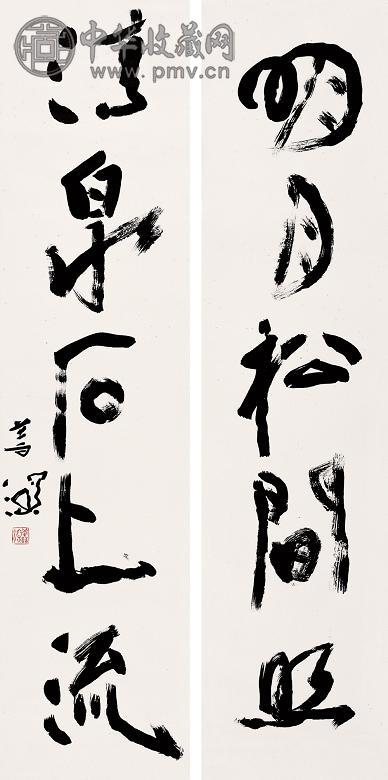 明月松間照
清泉石上流
中华收藏网
www.pmv.cn